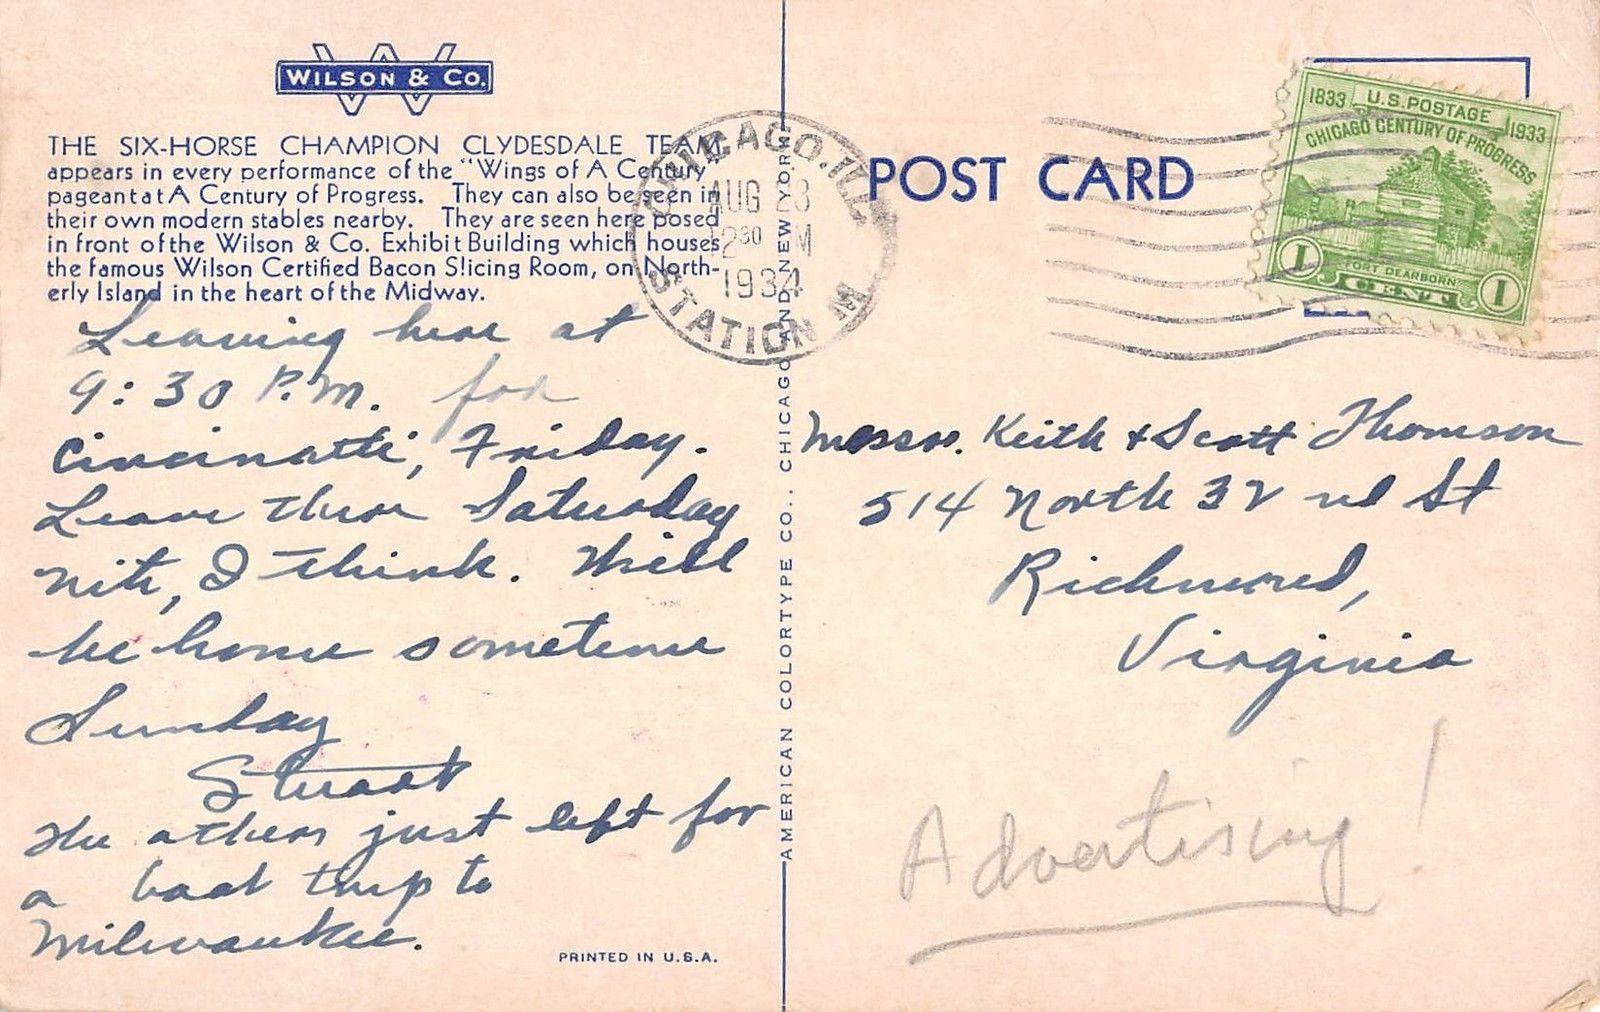 WILSON & CO.
THE SIX-HORSE CHAMPION CLYDESDALE TEAM,
appears in every performance of the "Wings of A Century"
pageant at A Century of Progress. They can also be seen in
their own modern stables nearby. They are seen here posed
in front of the Wilson & Co. Exhibit Building which houses
the famous Wilson Certified Bacon Slicing Room, on North-
erly Island in the heart of the Midway.
Leaving here at
9:30 P.M. for
Cincinatti, Friday.
Leave there Saturday
nite, I think. Will
be home sometime
Sunday
Stuart
The others just left for
a boat trip to
Milwaukee.
PRINTED IN U.S.A.
AMERICAN COLORTYPE CO., CHICAGO AND NEW YORK
CHICAGO, ILL.
AUG 23
12 30 M
1934
STATION
POST CARD
1833 U.S. POSTAGE 1933
CHICAGO CENTURY OF PROGRESS
FORT DEARBORN
1 CENT 1
Messrs. Keith & Scott Thomson
514 North 32 nd St
Richmond,
Virginia
Advertising!